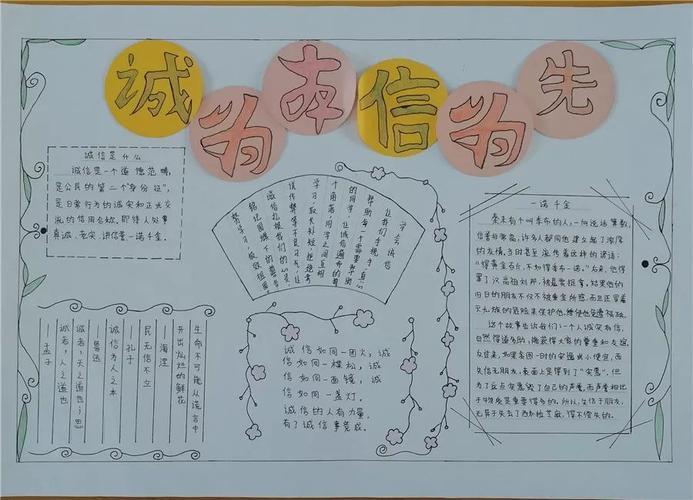 诚为本信为先
诚信是什么
诚信是一个道德范畴,
是公民的第二个"身份证",
是日常行为的诚实和正式交
流的信用合称,即待人处事
真诚、老实、讲信誉一诺千金。
学会诚信
让我们手挽手
一诺千金
秦末有个叫季布的人,一向说话算数,
信誉非常高,许多人都同他建立起了浓厚
的友情。当时甚至流传着这样的谚语:
"得黄金百斤,不如得季布一诺。"后来,他得
罪了汉高祖刘邦,被悬赏捉拿。结果他的
旧日的朋友不仅不被重金所惑,而且冒着
灭九族的危险来保护他,使他免遭祸殃。
这个故事告诉我们:一个人诚实有信,
自然得道多助,能获得大家的尊重和友谊
反过来,如果贪图一时的安逸或小便宜,而
失信于朋友,表面上是得到了"实惠"。但
为了这点实惠他毁了自己的声誉,而声誉相比
于物质是重要得多的。所以,失信于朋友,
无异于失去了西瓜捡芝麻,得不偿失的。
生命不可能从谎言中
开出灿烂的鲜花
——海涅
民无信不立
——孔子
诚信为人之本
——鲁迅
诚者,天之道也;思
诚者,人之道也
——孟子
诚信如同一团火,诚
信如同一棵松,诚
信如同一面镜,诚
信如同一盏灯。
诚信的人有力量,
有了诚信事竟成。